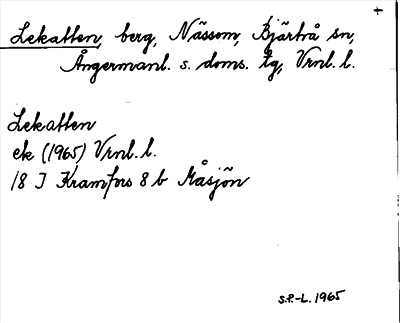 +
Lekatten, berg, Nässom, Bjärtrå sn,
Ångermanl. s. doms. tg, Vrnl. l.
Lekatten
ek (1965) Vrnl. l.
18 I Kramfors 8 b Måsjön
S.P.-L. 1965